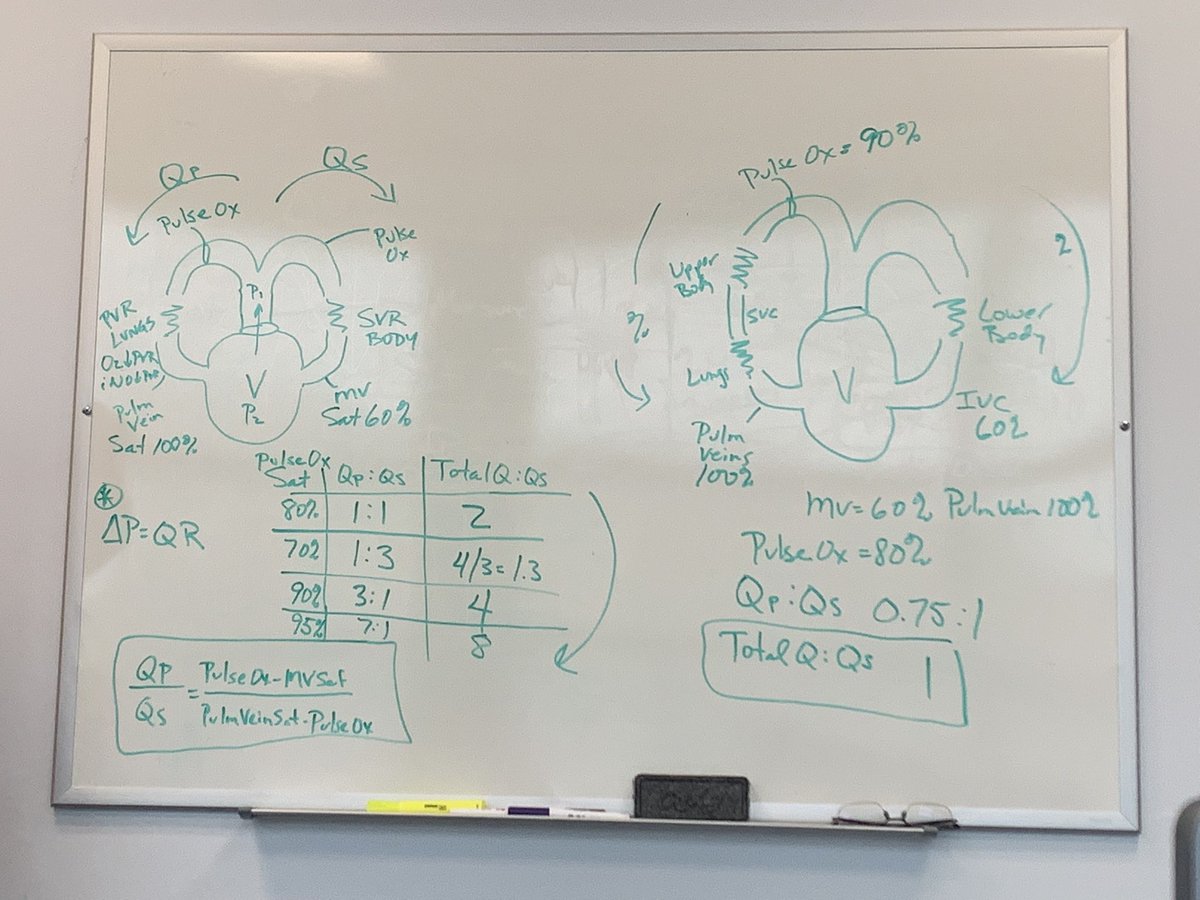 Qp
Qs
Pulse Ox
Pulse
Ox
P₁
PVR
LUNGS
SVR
BODY
O2↓PVR
iNO↓PVR
V
P₂
Pulm
Vein
Sat 100%
MV
Sat 60%
*
ΔP=QR
Pulse Ox
Sat
Qp:Qs
Total Q:Qs
80% 1:1 2
70% 1:3 4/3=1.3
90% 3:1 4
95% 7:1 8
Qp/Qs = Pulse Ox-MVSat/PulmVeinSat-Pulse Ox
Pulse Ox = 90%
2
Upper
Body
SVC
Lungs
Lower
Body
V
IVC
60%
Pulm
Veins
100%
MV=60% Pulm Vein 100%
Pulse Ox =80%
Qp:Qs 0.75:1
Total Q:Qs 1